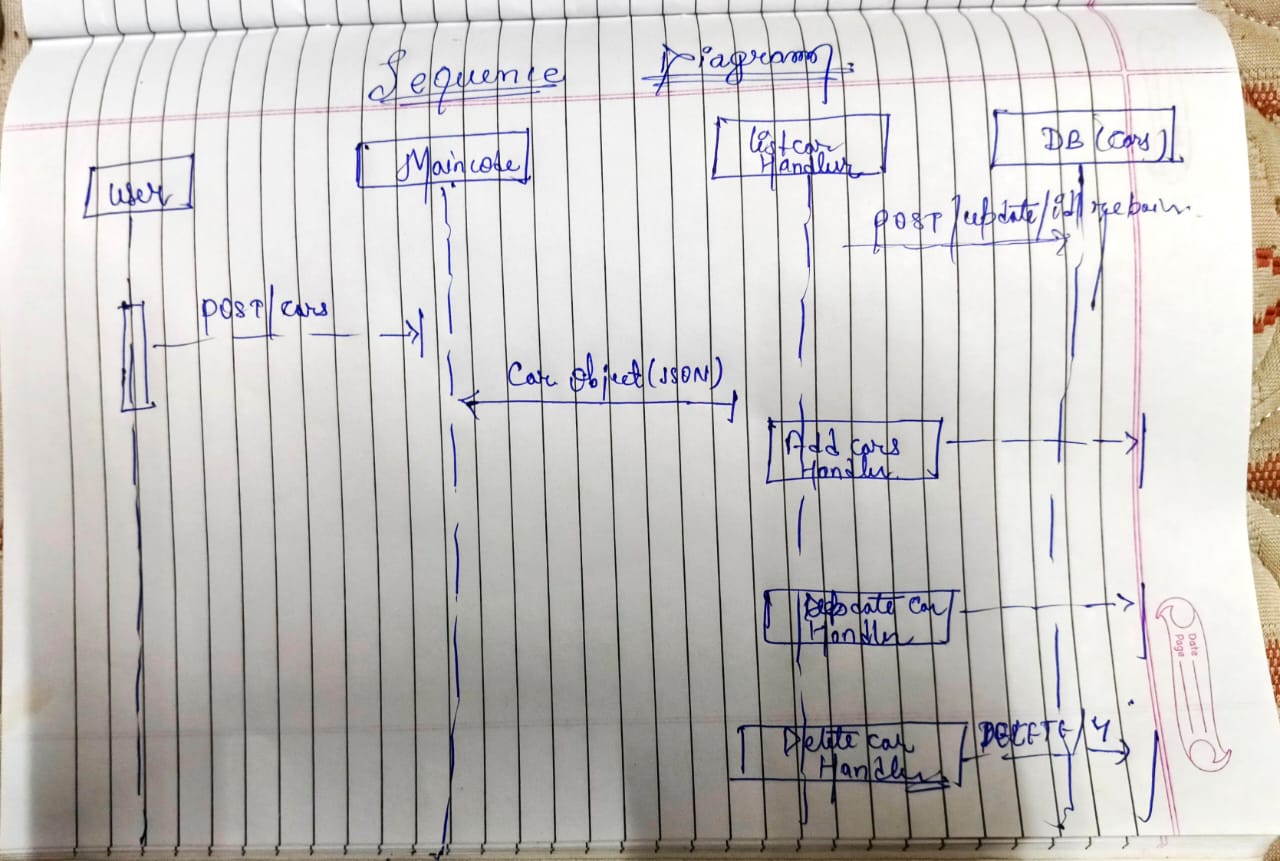 Sequence Diagram
User
Maincode
List car
Handler
DB (Cars)
POST/update/id/
POST/cars
Car Object (JSON)
Add cars
Handler
Update Car
Handler
Delete car
Handler
DELETE/4
Date
Page